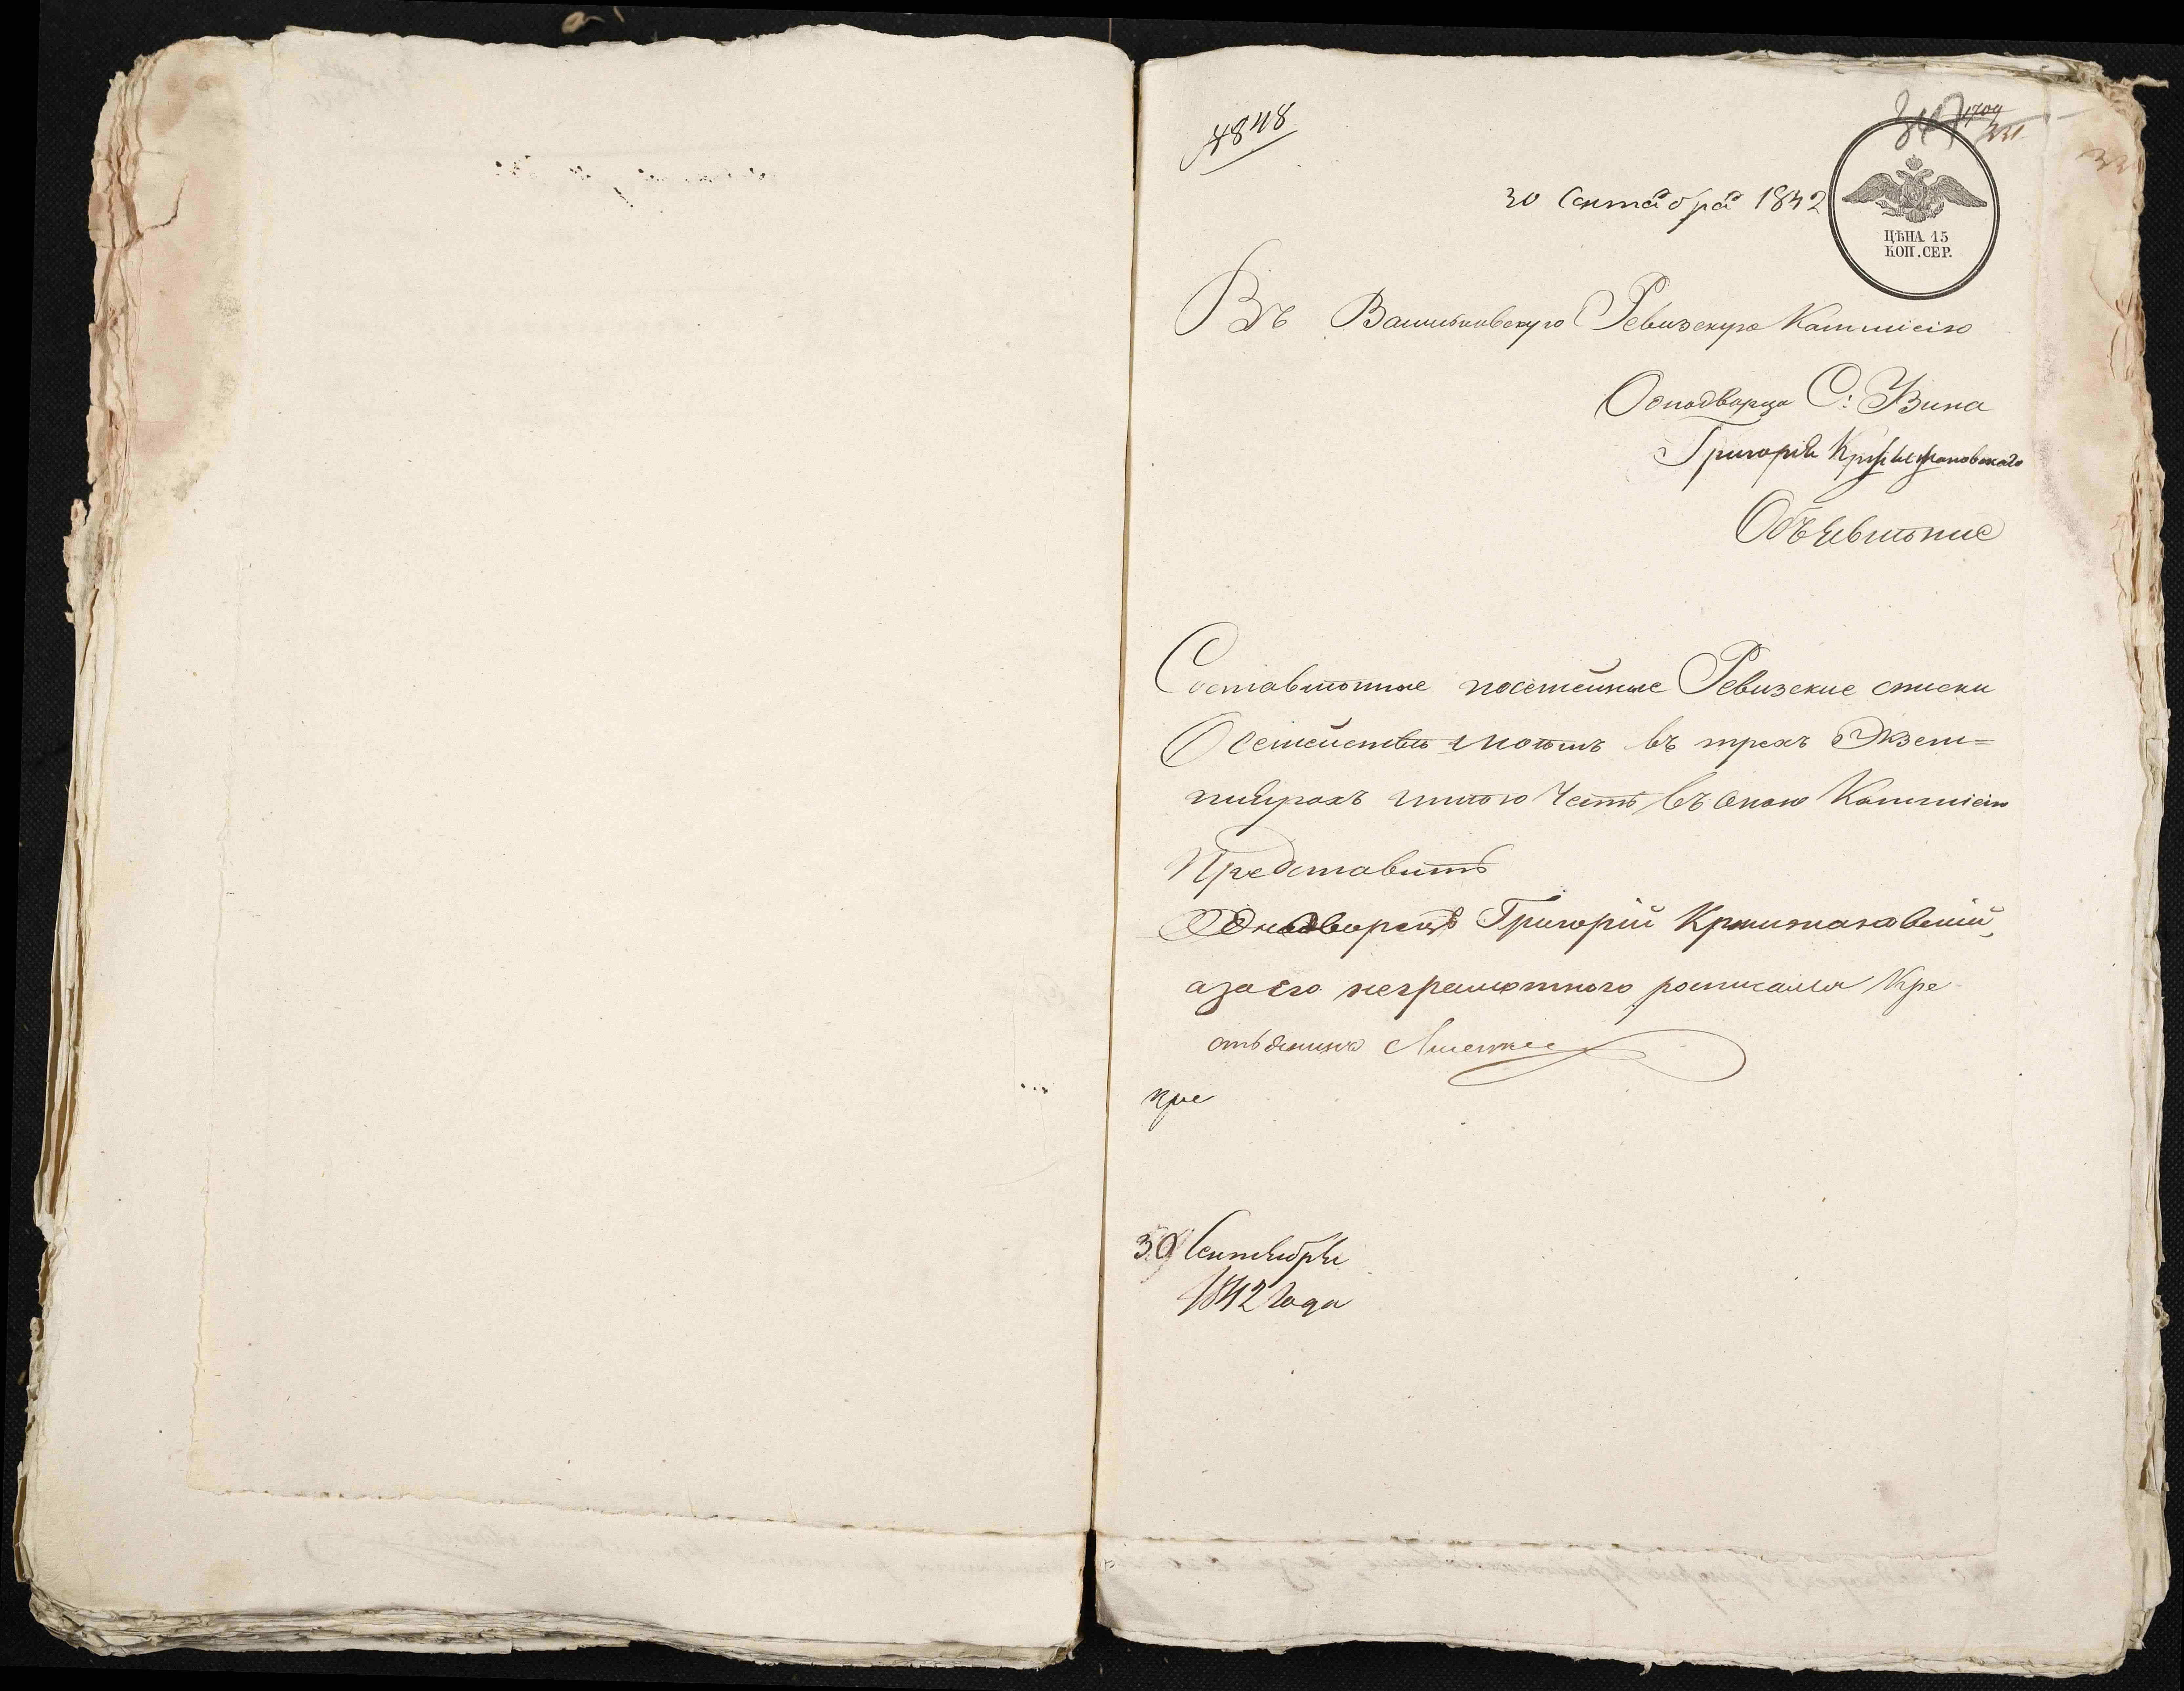 4848
30 Сентября 1842
ЦѢНА 15
КОП. СЕР.
Въ Васильковскую Ревизскую Коммисію
Однодворца С:
Григорія Кржижановскаго
Объявленіе
Составленные посемейные Ревизские списки
О семействѣ моемъ въ трехъ Экзем=
плярахъ имѣю Честь въ оною Коммисію
Представить
Однодворецъ Григорій Кржижановскій,
а за его неграмотного росписался Кре
стьянинъ
кре
30 Сентября
1842 года